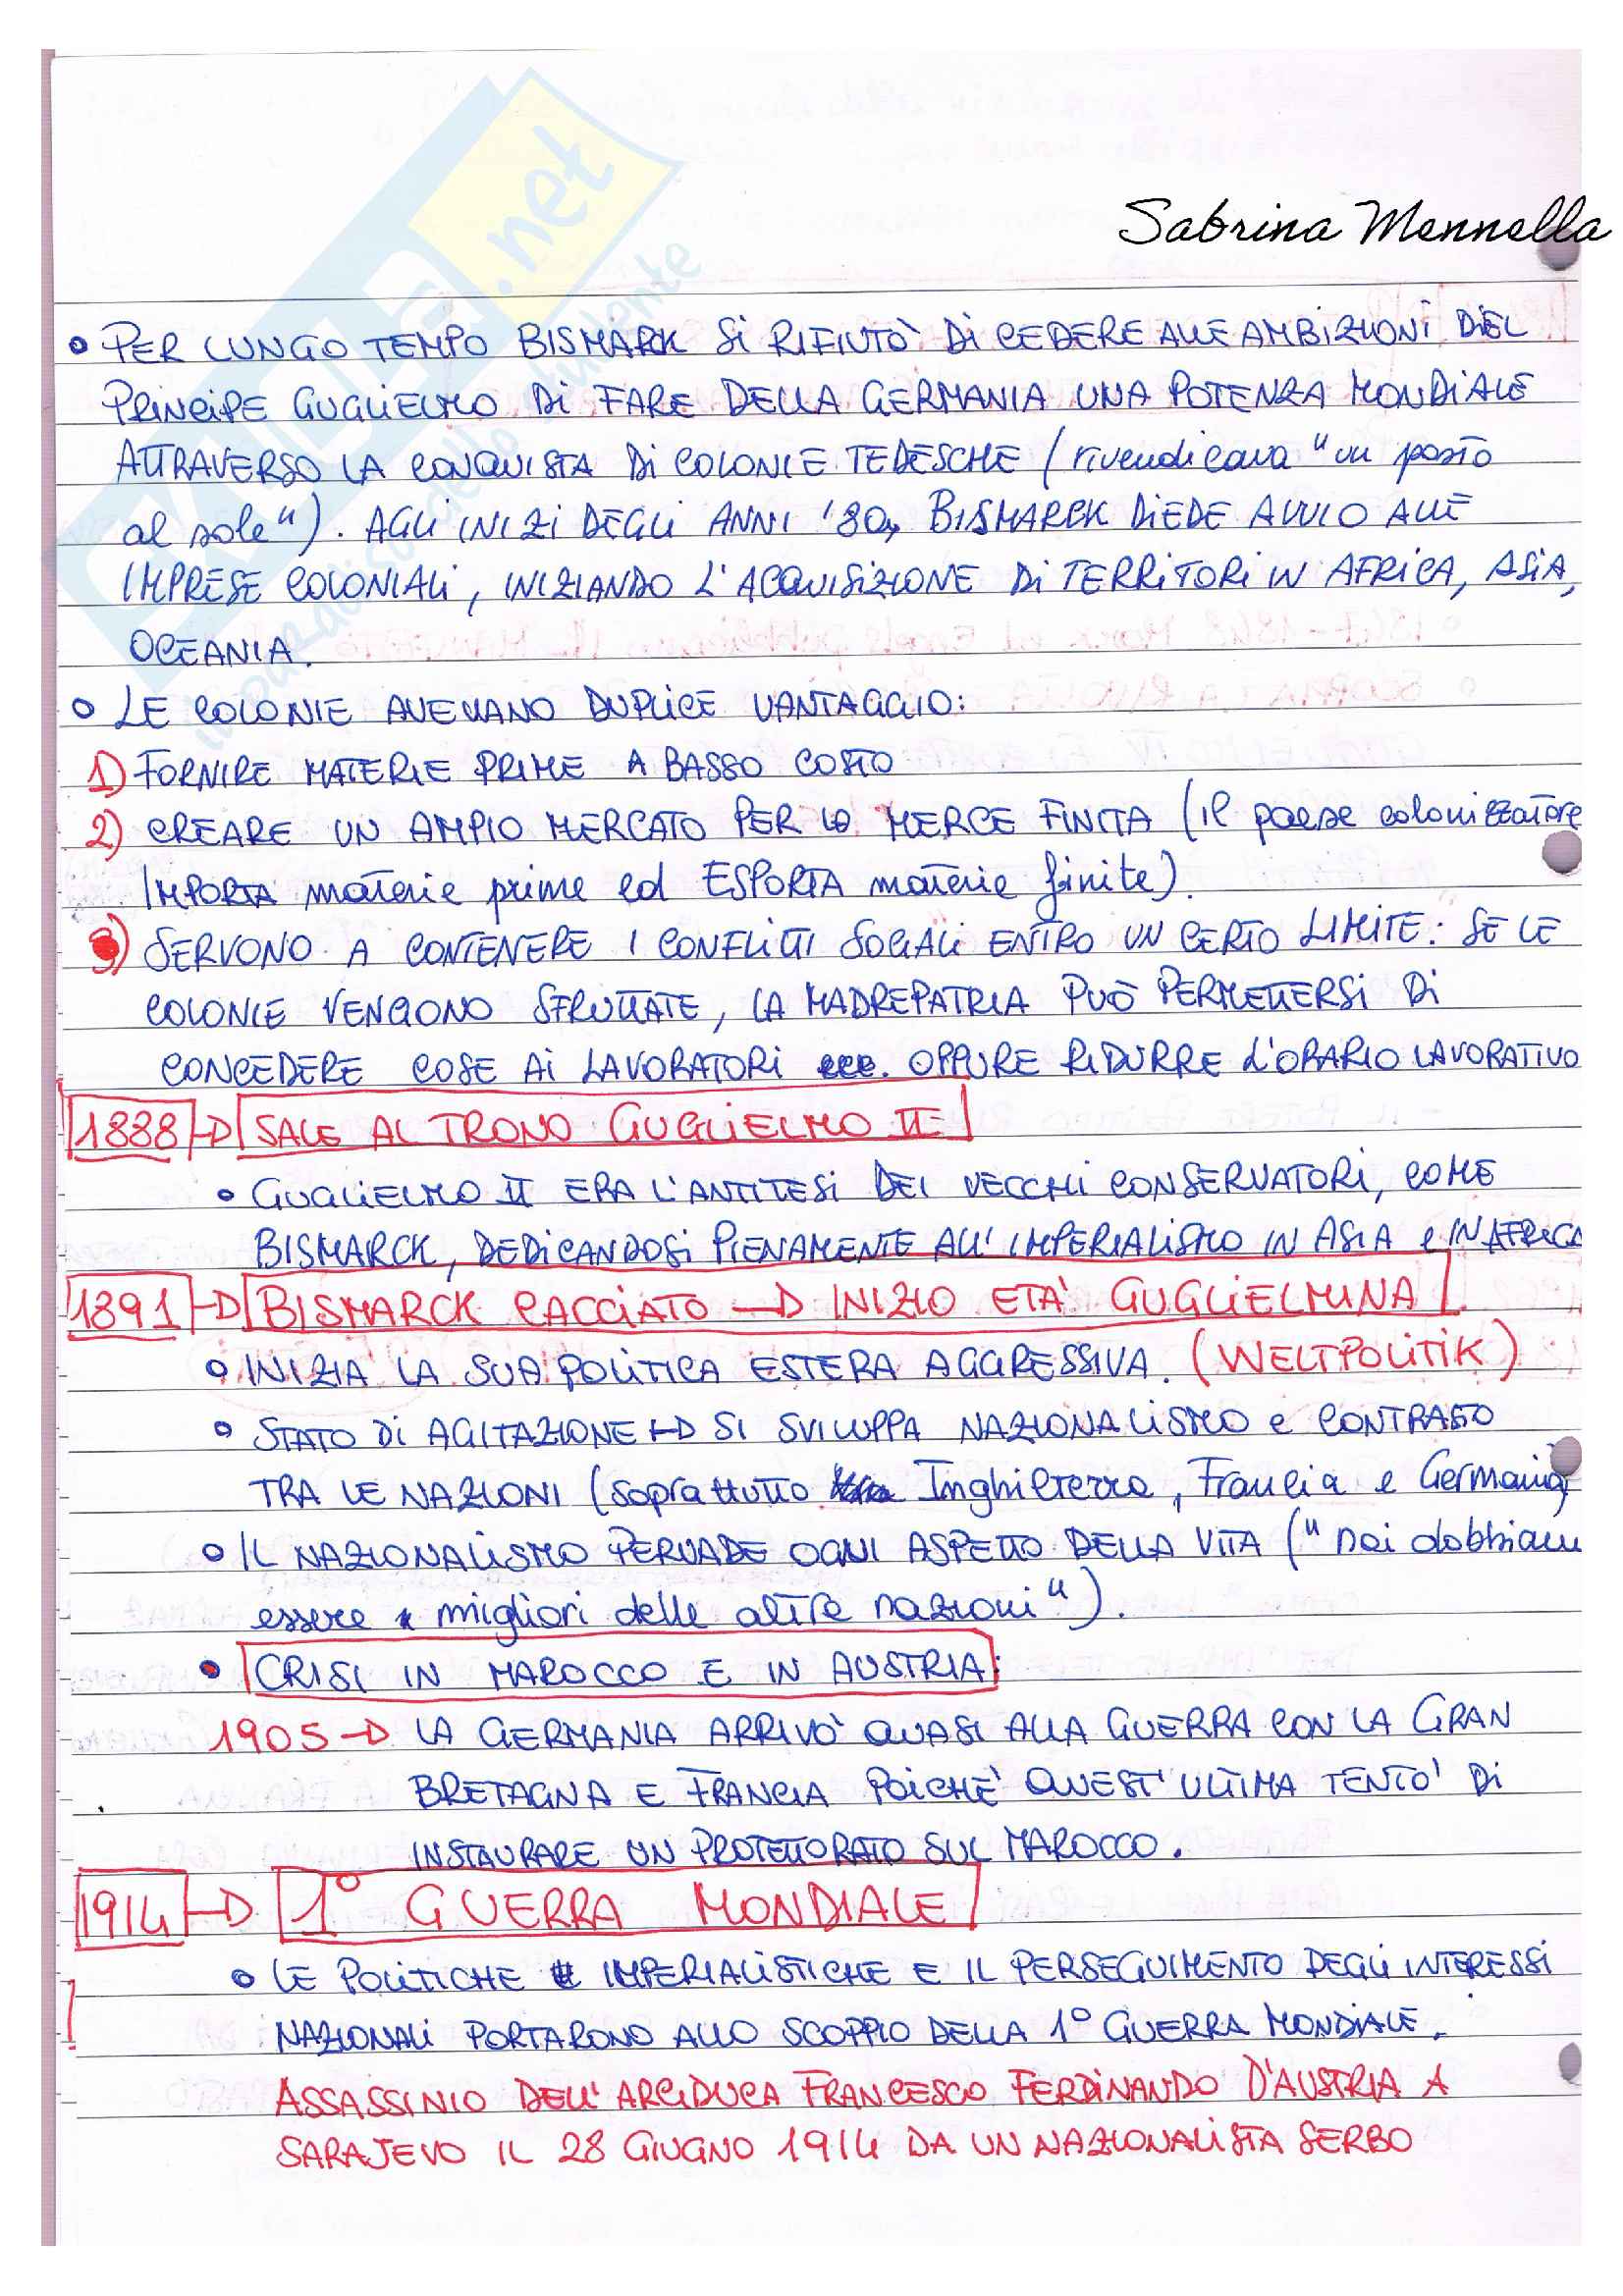 Sabrina Mennella
• PER LUNGO TEMPO BISMARK SI RIFIUTÒ DI CEDERE ALLE AMBIZIONI DEL
PRINCIPE GUGLIELMO DI FARE DELLA GERMANIA UNA POTENZA MONDIALE
ATTRAVERSO LA CONQUISTA DI COLONIE TEDESCHE (rivendicava "un posto
al sole"). AGLI INIZI DEGLI ANNI '80, BISMARCK DIEDE AVVIO ALLE
IMPRESE COLONIALI, INIZIANDO L'ACQUISIZIONE DI TERRITORI IN AFRICA, ASIA,
OCEANIA.
• LE COLONIE AVEVANO DUPLICE VANTAGGIO:
1) FORNIRE MATERIE PRIME A BASSO COSTO
2) CREARE UN AMPIO MERCATO PER LA MERCE FINITA (il paese colonizzatore
IMPORTA materie prime ed ESPORTA materie finite).
3) SERVONO A CONTENERE I CONFLITTI SOCIALI ENTRO UN CERTO LIMITE: SE LE
COLONIE VENGONO SFRUTTATE, LA MADREPATRIA PUÒ PERMETTERSI DI
CONCEDERE COSE AI LAVORATORI OPPURE RIDURRE L'ORARIO LAVORATIVO
1888 → SALE AL TRONO GUGLIELMO II
• GUGLIELMO II ERA L'ANTITESI DEI VECCHI CONSERVATORI, COME
BISMARCK, DEDICANDOSI PIENAMENTE ALL'IMPERIALISMO IN ASIA e IN AFRICA
1891 → BISMARCK CACCIATO → INIZIO ETÀ GUGLIELMINA
• INIZIA LA SUA POLITICA ESTERA AGGRESSIVA. (WELTPOLITIK)
• STATO DI AGITAZIONE → SI SVILUPPA NAZIONALISMO e CONTRASTO
TRA LE NAZIONI (soprattutto Inghilterra, Francia e Germania)
• IL NAZIONALISMO PERVADE OGNI ASPETTO DELLA VITA ("noi dobbiamo
essere migliori delle altre nazioni").
• CRISI IN MAROCCO E IN AUSTRIA:
1905 → LA GERMANIA ARRIVÒ QUASI ALLA GUERRA CON LA GRAN
BRETAGNA E FRANCIA POICHÈ QUEST'ULTIMA TENTÒ DI
INSTAURARE UN PROTETTORATO SUL MAROCCO.
1914 → 1° GUERRA MONDIALE
• LE POLITICHE IMPERIALISTICHE E IL PERSEGUIMENTO DEGLI INTERESSI
NAZIONALI PORTARONO ALLO SCOPPIO DELLA 1° GUERRA MONDIALE.
ASSASSINIO DELL'ARCIDUCA FRANCESCO FERDINANDO D'AUSTRIA A
SARAJEVO IL 28 GIUGNO 1914 DA UN NAZIONALISTA SERBO